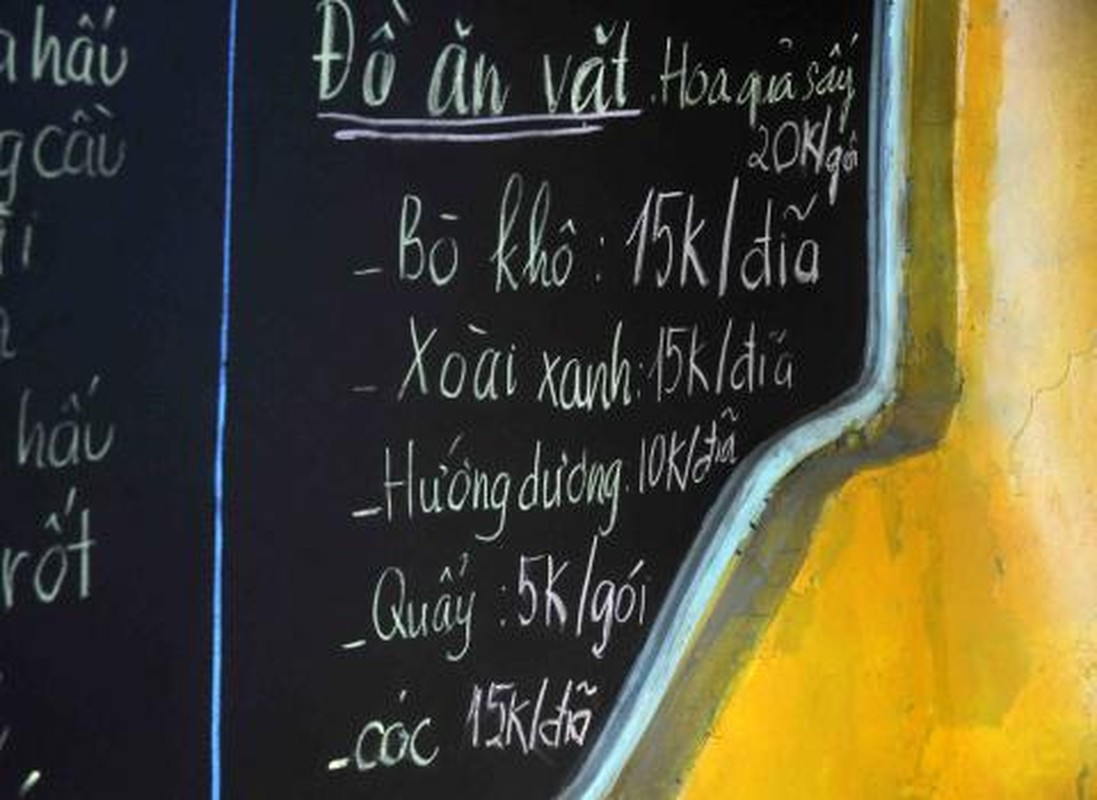 hấu
cầu
hấu
rốt
Đồ ăn vặt . Hoa quả sấy
20K/gói
- Bò khô : 15K/đĩa
- Xoài xanh: 15K/đĩa
- Hướng dương. 10K/đĩa
- Quẩy : 5K/gói
- cóc 15K/đĩa